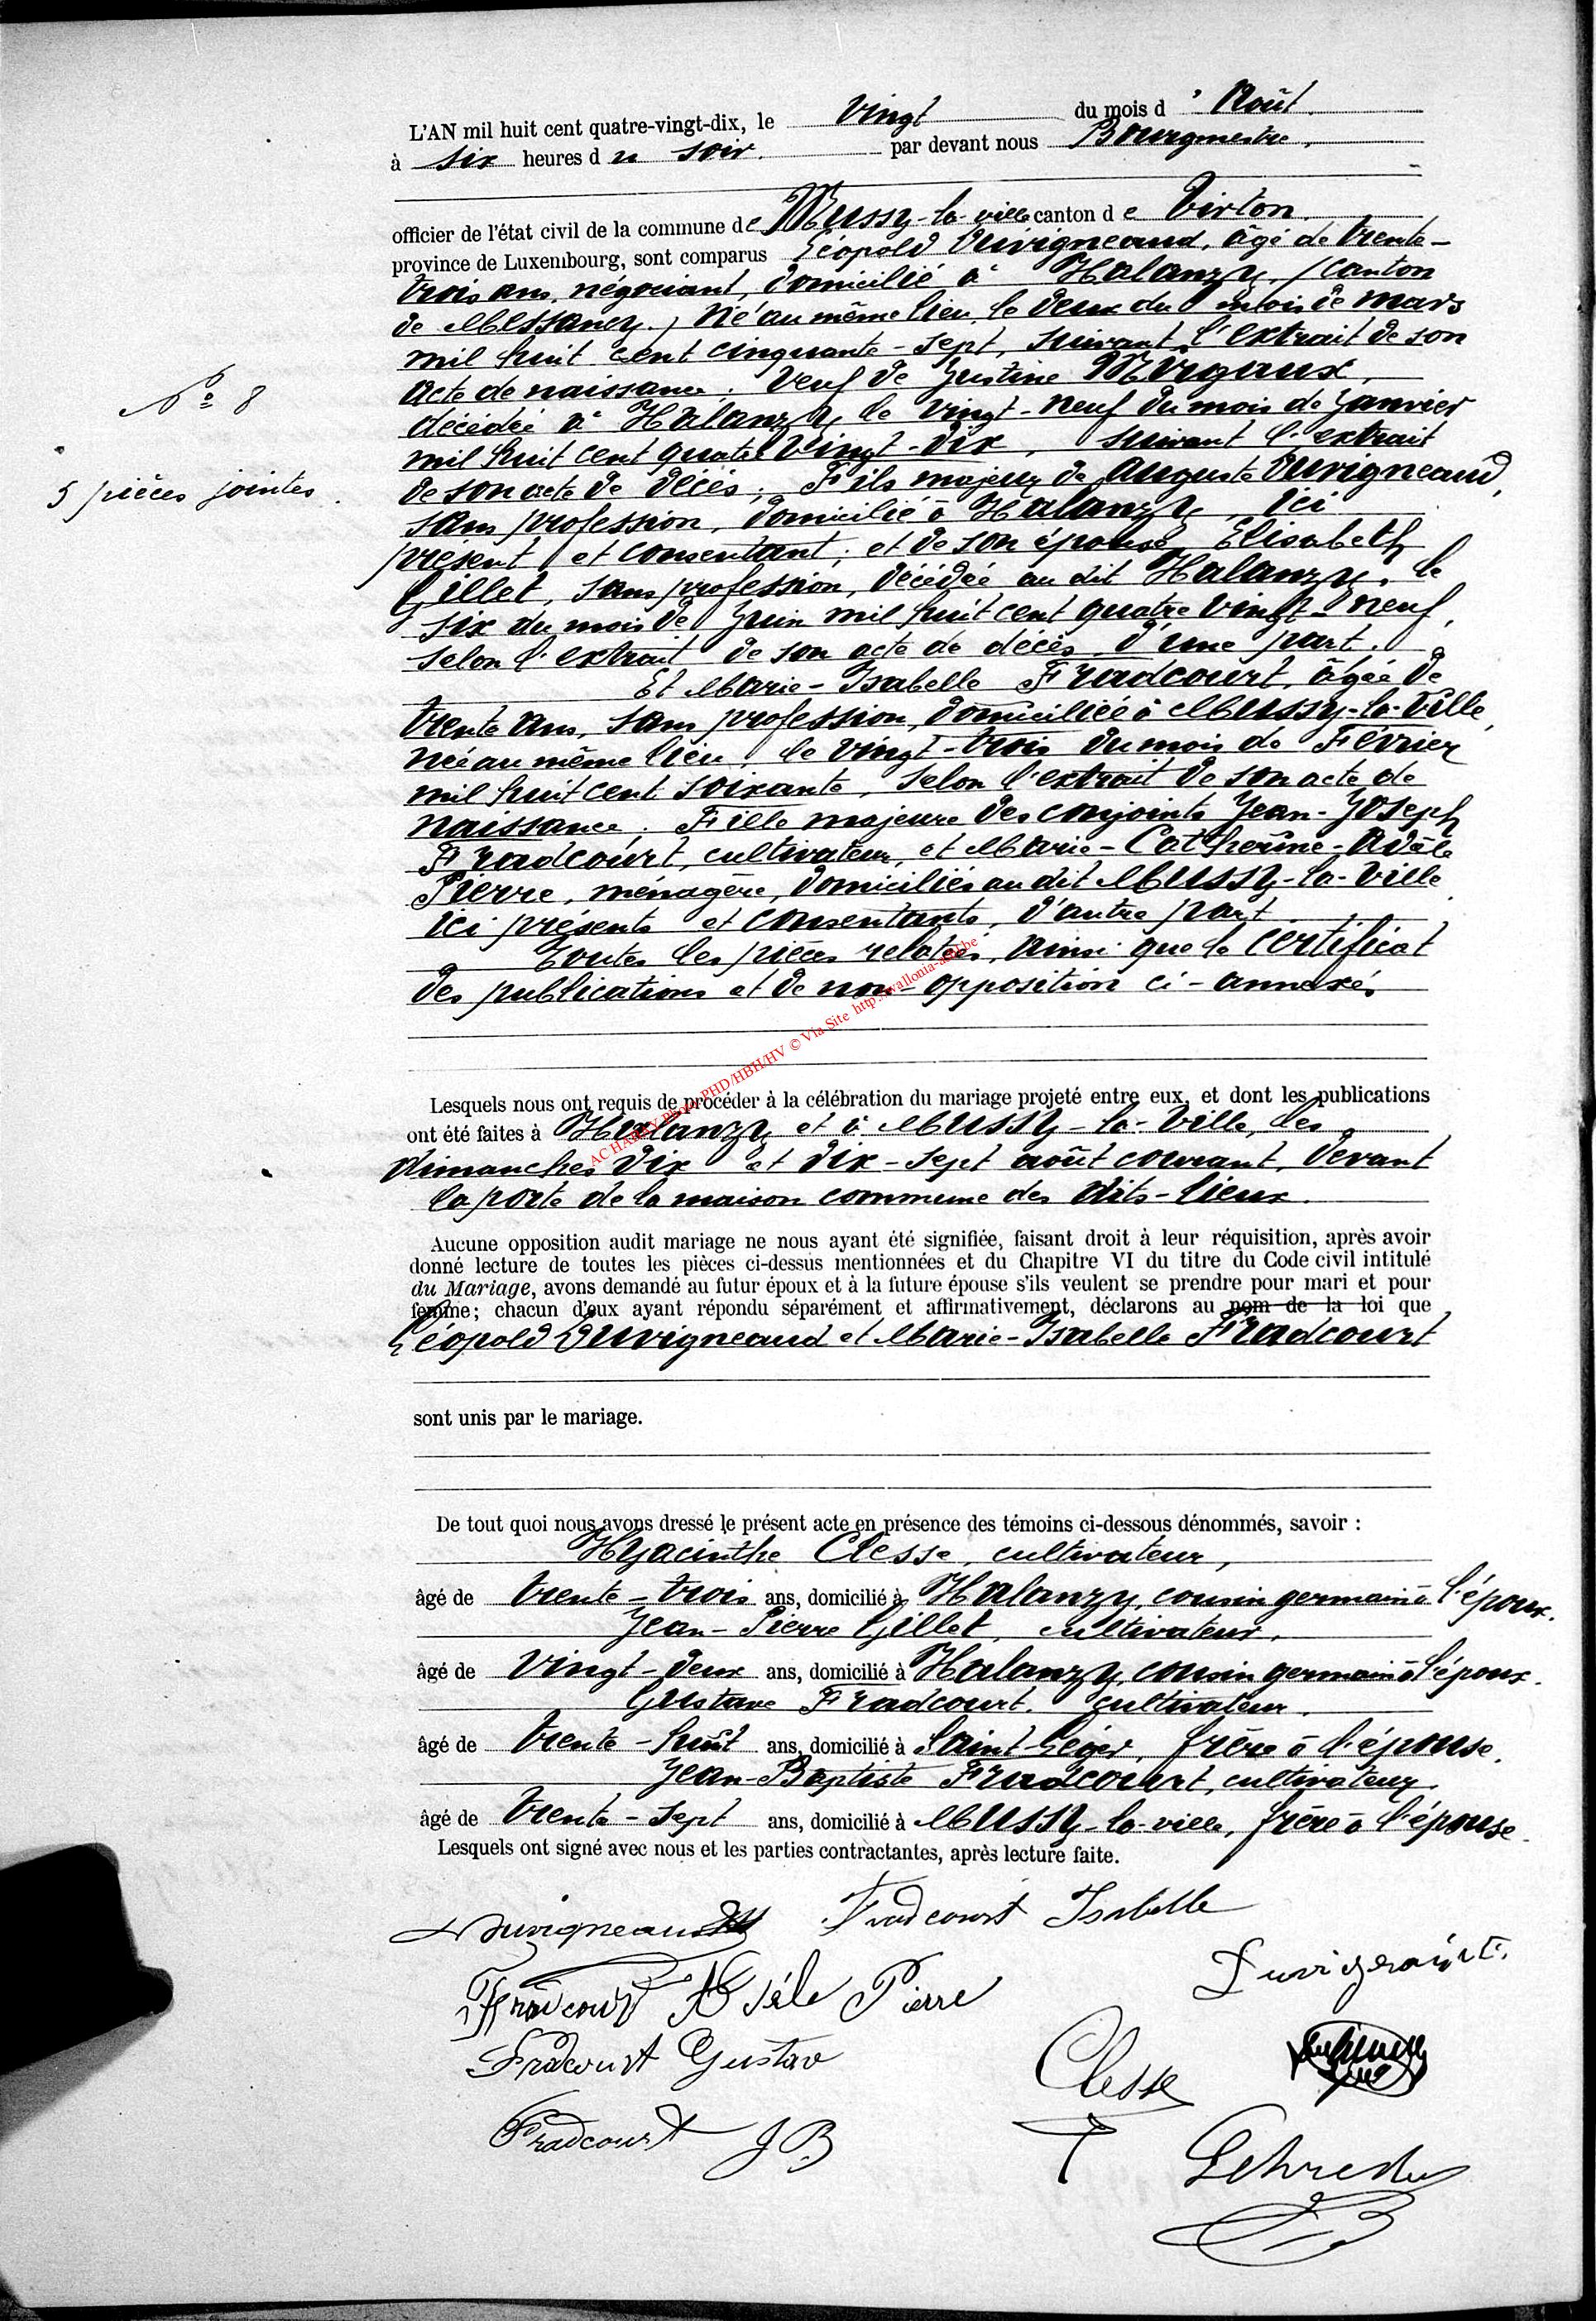 L'AN mil huit cent quatre-vingt-dix, le Vingt du mois d' Août
à six heures du soir. par devant nous Bourgmestre,
officier de l'état civil de la commune de Mussy-la-ville canton de Virton.
province de Luxembourg, sont comparus Léopold Duvigneaud, âgé de trente-
trois ans, négociant, domicilié à Halanzy, (canton
de Messancy.) Né au même lieu, le deux du mois de mars
mil huit cent cinquante-sept, suivant l'extrait de son
acte de naissance; Veuf de Justine Mirgaux,
décédée à Halanzy le vingt-neuf du mois de Janvier
mil huit cent quatre vingt-dix, suivant l'extrait
N° 8
de son acte de décès; Fils majeur de Auguste Duvigneaud,
5 pièces jointes.
sans profession, domicilié à Halanzy, ici
présent et consentant; et de son épouse Elisabeth
Gillet, sans profession, décédée au dit Halanzy, le
six du mois de Juin mil huit cent quatre vingt-neuf,
selon l'extrait de son acte de décès, d'une part.
Et Marie-Isabelle Fradcourt, âgée de
trente ans, sans profession, domiciliée à Mussy-la-Ville,
née au même lieu, le vingt-trois du mois de Février
mil huit cent soixante, selon l'extrait de son acte de
naissance; Fille majeure des conjoints Jean-Joseph
Fradcourt, cultivateur, et Marie-Catherine-Adèle
Pierre, ménagère, domiciliés au dit Mussy-la-Ville
ici présents et consentants, d'autre part.
Toutes les pièces relatées, ainsi que le certificat
des publications et de non-opposition ci-annexés
AC HARZY Photo PHD/HBH/HV © Via Site http://wallonia-asbl.be
Lesquels nous ont requis de procéder à la célébration du mariage projeté entre eux, et dont les publications
ont été faites à Halanzy et à Mussy-la-Ville, les
dimanches dix et dix-sept août courant, devant
la porte de la maison commune des dits-lieux.
Aucune opposition audit mariage ne nous ayant été signifiée, faisant droit à leur réquisition, après avoir
donné lecture de toutes les pièces ci-dessus mentionnées et du Chapitre VI du titre du Code civil intitulé
du Mariage, avons demandé au futur époux et à la future épouse s'ils veulent se prendre pour mari et pour
femme; chacun d'eux ayant répondu séparément et affirmativement, déclarons au nom de la loi que
Léopold Duvigneaud et Marie-Isabelle Fradcourt
sont unis par le mariage.
De tout quoi nous avons dressé le présent acte en présence des témoins ci-dessous dénommés, savoir :
Hyacinthe Clesse, cultivateur,
âgé de trente-trois ans, domicilié à Halanzy, cousin germain à l'époux.
Jean-Pierre Gillet, cultivateur,
âgé de Vingt-deux ans, domicilié à Halanzy, cousin germain à l'époux.
Gustave Fradcourt, cultivateur,
âgé de trente-huit ans, domicilié à Saint-Léger, frère à l'épouse.
Jean-Baptiste Fradcourt, cultivateur,
âgé de trente-sept ans, domicilié à Mussy-la-ville, frère à l'épouse.
Lesquels ont signé avec nous et les parties contractantes, après lecture faite.
Duvigneaud Fradcourt Isabelle
Fradcourt Adèle Pierre
Fradcourt Gustave
Clesse
Fradcourt J B